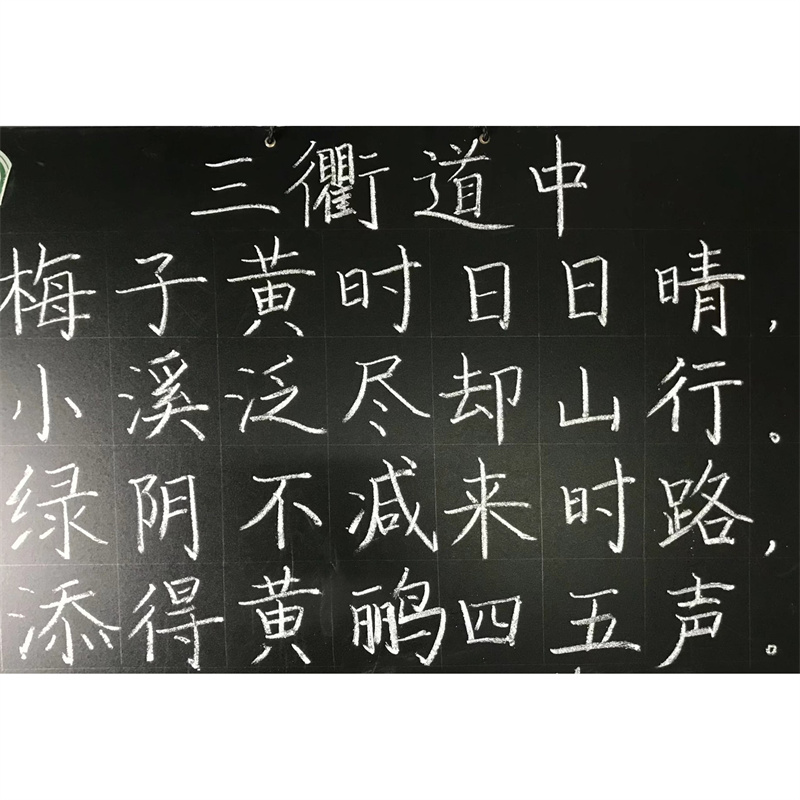 三衢道中
梅子黄时日日晴，
小溪泛尽却山行。
绿阴不减来时路，
添得黄鹂四五声。